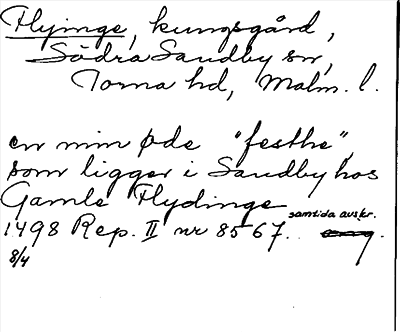 Flyinge, kungsgård,
Södra Sandby sn,
Torna hd, Malm. l.
en min øde "festhe",
som ligger i Sandby hos
Gamle Flydinge
samtida avskr.
1498 Rep. II nr 8567.
8/4